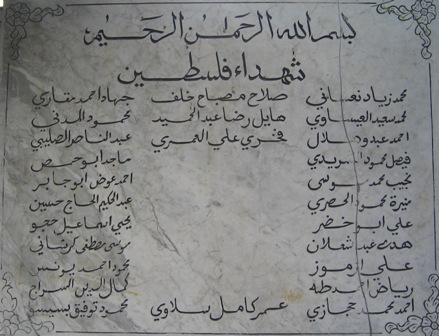 بسم الله الرحمن الرحيم
شهداء فلسطين
محمد زياد نعساني صلاح مصباح خلف جهاد احمد
محمد سعيد العيساوي هايل رضا عبد الحميد محمود المدني
احمد عبدو هلال فخري علي العمري عبد الناصر الصليبي
فيصل محمود ماجد ابو حمص
نجيب محمد موسى احمد عوض ابو جابر
منيرة محمود المصري عبد الحكيم الحاج حسين
علي ابو خضر يحيى اسماعيل حجو
هدى عبد شعلان موسى مصطفى
علي محمود احمد يونس
رياض احمد طه كمال الدين السراج
احمد محمد حجازي عمر كامل سلاوي محمود توفيق بسيسو